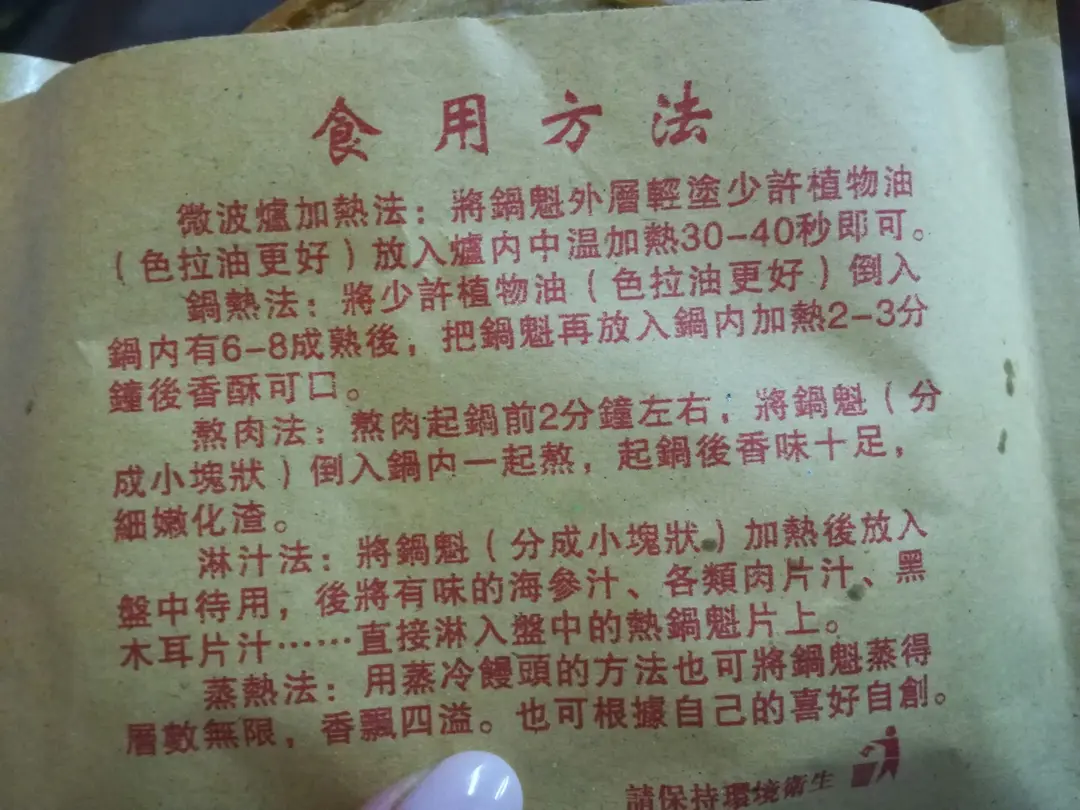 食用方法
微波爐加熱法：將鍋魁外層輕塗少許植物油
（色拉油更好）放入爐内中温加熱30-40秒即可。
鍋熱法：將少許植物油（色拉油更好）倒入
鍋内有6-8成熟後，把鍋魁再放入鍋内加熱2-3分
鐘後香酥可口。
熬肉法：熬肉起鍋前2分鐘左右，將鍋魁（分
成小塊狀）倒入鍋内一起熬，起鍋後香味十足，
細嫩化渣。
淋汁法：將鍋魁（分成小塊狀）加熱後放入
盤中待用，後將有味的海參汁、各類肉片汁、黑
木耳片汁……直接淋入盤中的熱鍋魁片上。
蒸熱法：用蒸冷饅頭的方法也可將鍋魁蒸得
層數無限，香飄四溢。也可根據自己的喜好自創。
請保持環境衛生